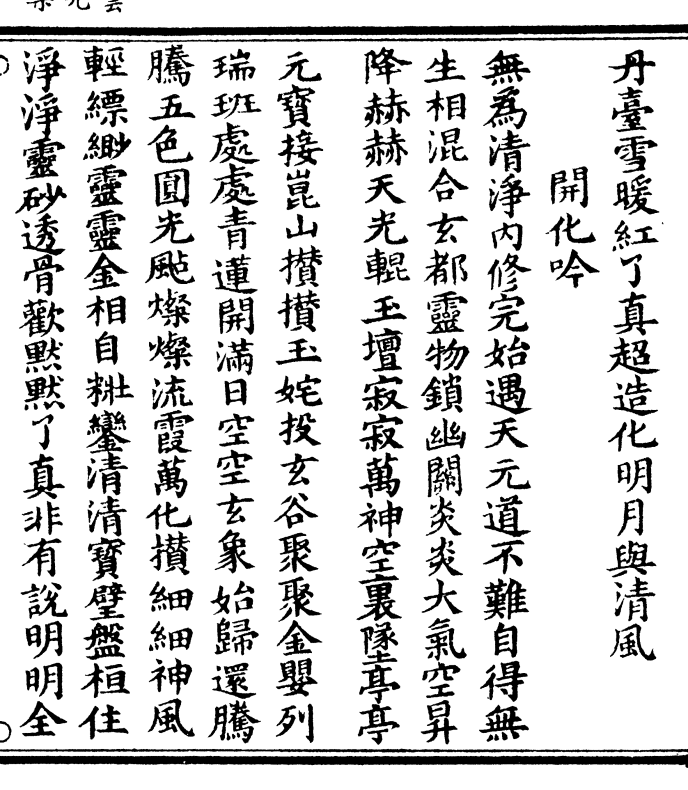 丹臺雪暖紅了真超造化明月與清風
開化吟
無為清淨內修完始遇天元道不難自得無
生相混合玄都靈物鎖幽關炎炎大氣空昇
降赫赫天光輥玉壇寂寂萬神空裏墜亭亭
元寶接崑山攢攢玉姹投玄谷聚聚金嬰列
瑞班處處青蓮開滿日空空玄象始歸還騰
騰五色圓光颭燦燦流霞萬化攢細細神風
輕縹緲靈靈金相自𥹥鑾清清寶璧盤桓住
淨淨靈砂透骨歡默默了真非有說明明全